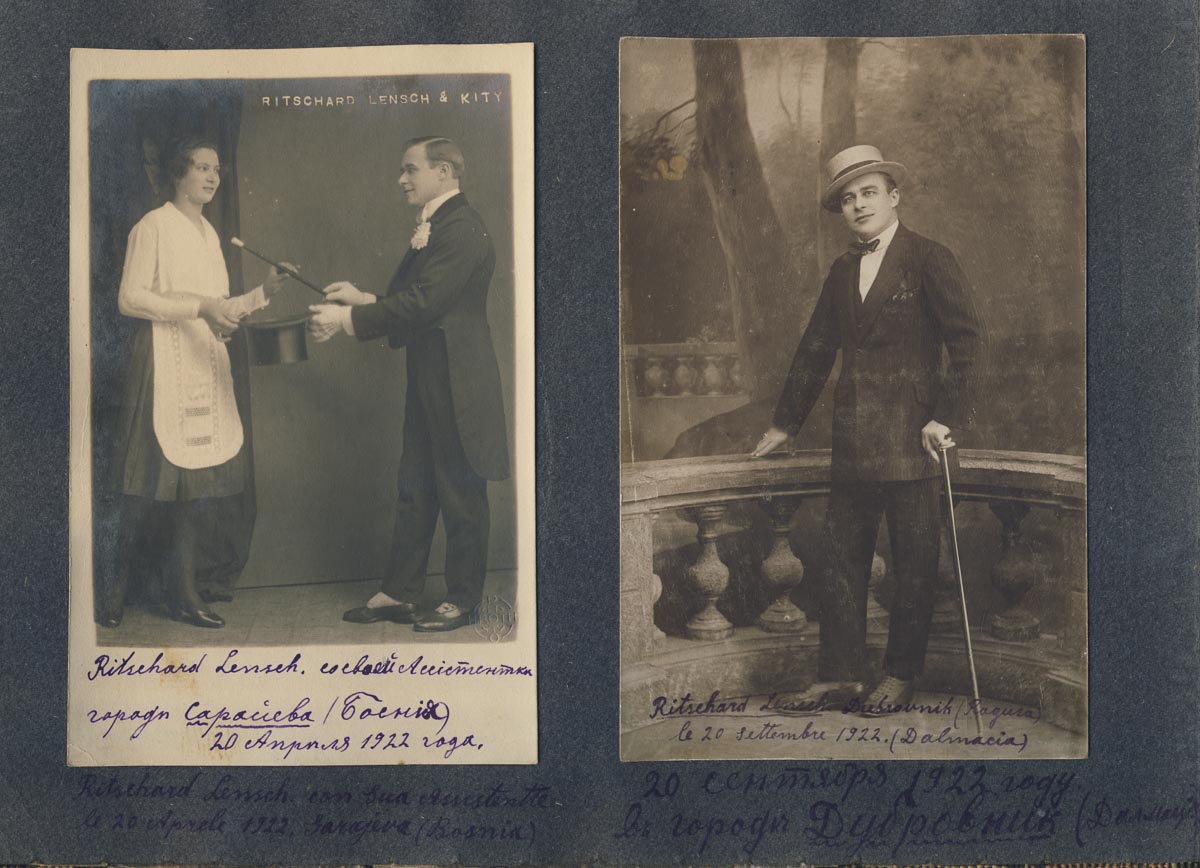 RITSCHARD LENSCH & KITY
Ritschard Lensch. со своей Ассiстентки
городи Сарайева (Босния)
20 Апрпля 1922 года.
Ritschard Lensch. con Sua Assistentte
le 20 Aprele 1922. Sarajeva (Bosnia)
Ritschard Lensch Dubrovnik (Ragusa)
le 20 Settembre 1922. (Dalmacia)
20 сентября 1922 году
въ городи Дубровник (Далмац